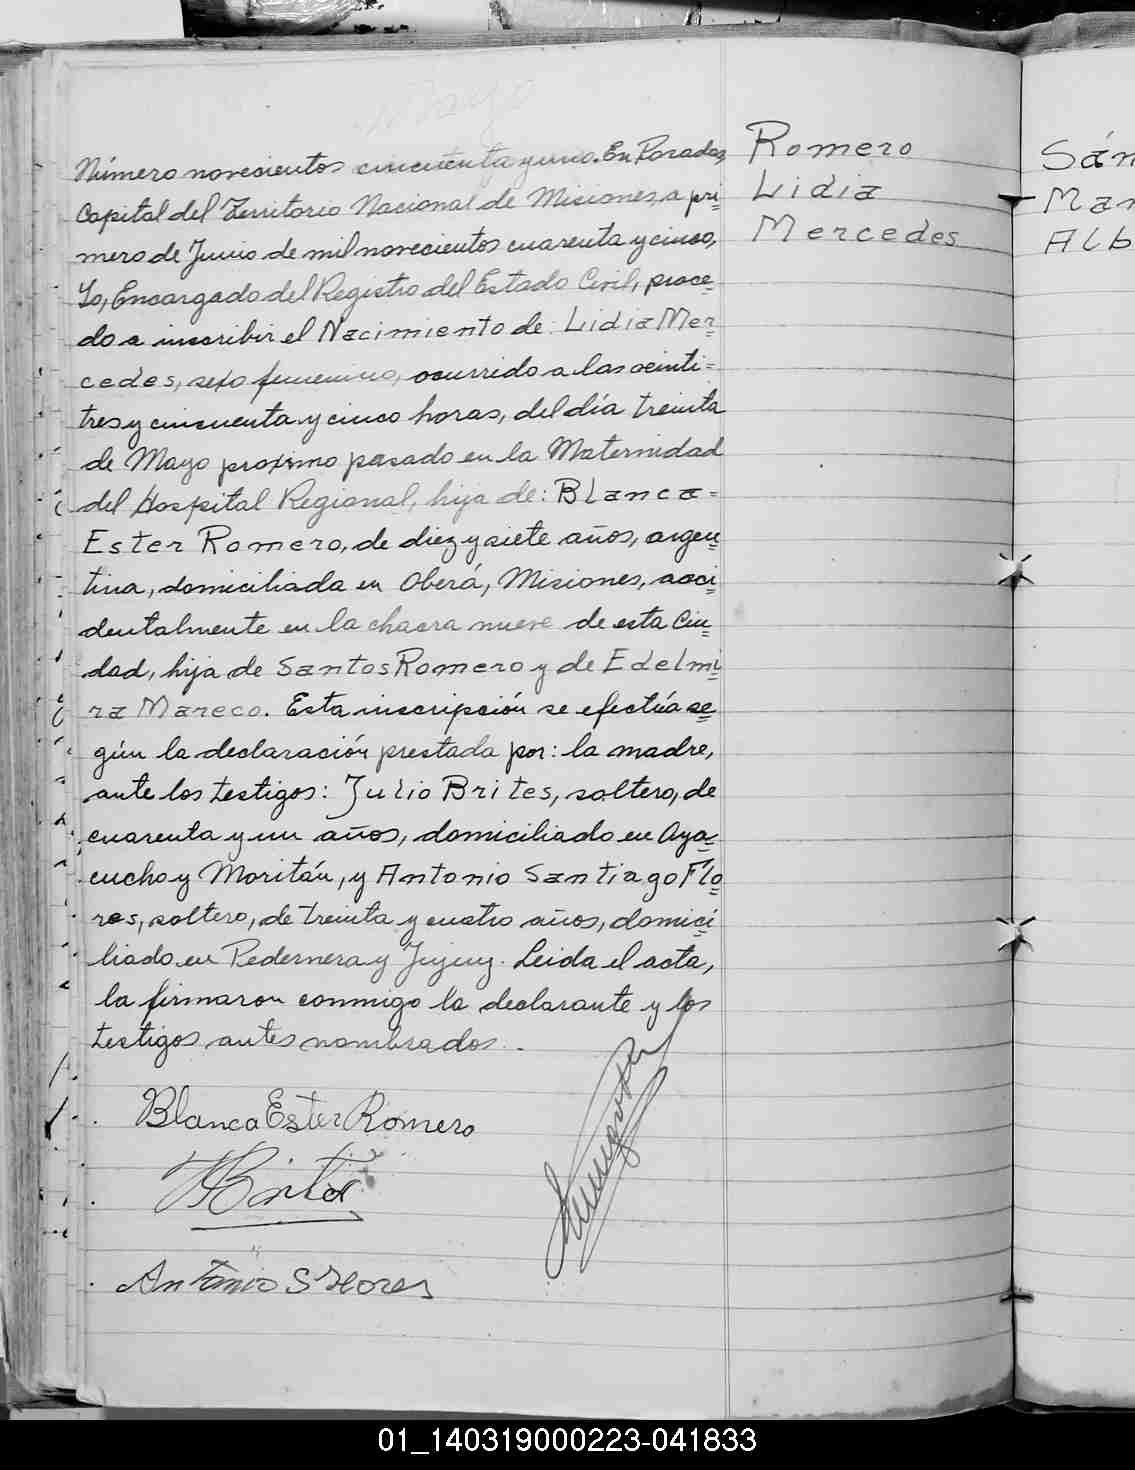 Mayo
Número novecientos cincuenta y uno. En Posadas,
Capital del Territorio Nacional de Misiones, a pri=
mero de Junio de mil novecientos cuarenta y cinco,
Yo, Encargado del Registro del Estado Civil, proce=
do a inscribir el Nacimiento de: Lidia Mer=
cedes, sexo femenino, ocurrido a las veinti=
tres y cincuenta y cinco horas, del día treinta
de Mayo proximo pasado en la Maternidad
del Hospital Regional, hija de: Blanca=
Ester Romero, de diez y siete años, argen=
tina, domiciliada en Oberá, Misiones, acci=
dentalmente en la chacra nueve de esta Ciu=
dad, hija de Santos Romero y de Edelmi=
ra Mareco. Esta inscripción se efectúa se=
gún la declaración prestada por: la madre,
ante los testigos: Julio Brites, soltero, de
cuarenta y un años, domiciliado en Aya=
cucho y Moritán, y Antonio Santiago Flo=
res, soltero, de treinta y cuatro años, domici=
liado en Pedernera y Jujuy. Leida el acta,
la firmaron conmigo la declarante y los
testigos antes nombrados.
Blanca Ester Romero
Antonio S Flores
Romero
Lidia
Mercedes
Sán
Mar
Alb
01_140319000223-041833